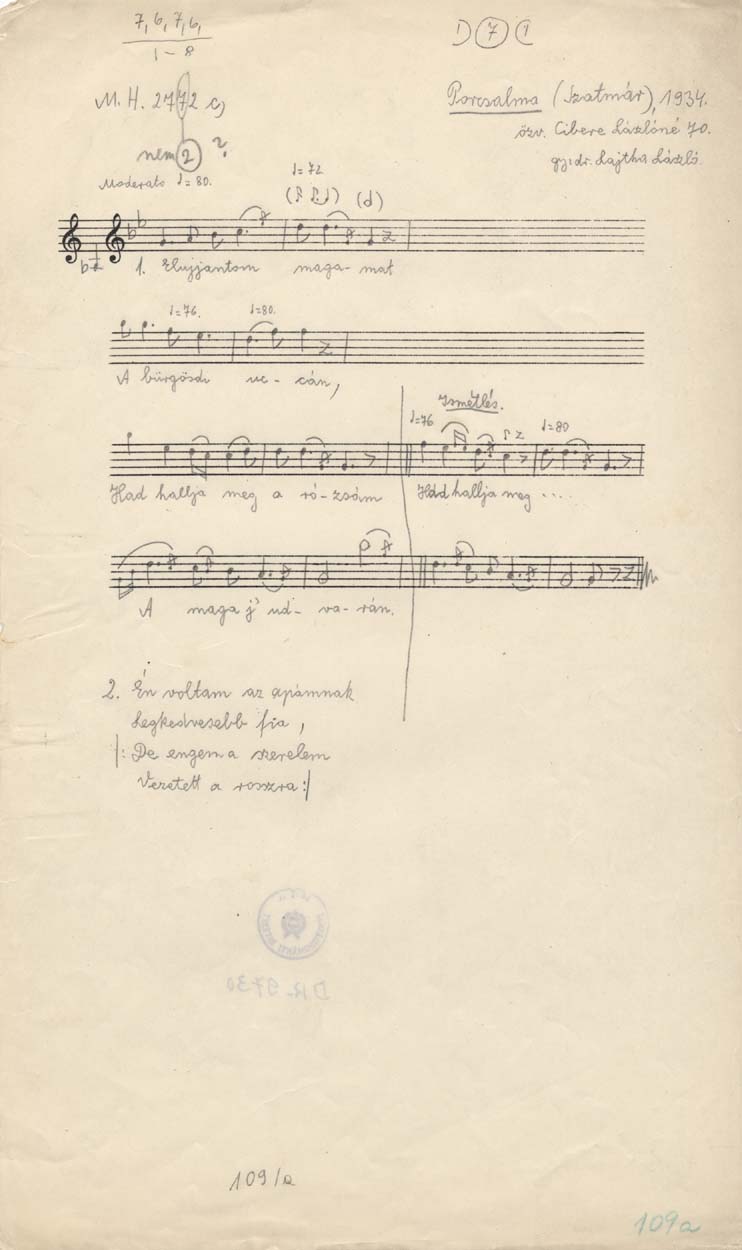 7, 6, 7, 6,
1–8
1) 7 (1
M. H. 2772 c)
nem 2 ?
Porcsalma (Szatmár), 1934.
özv. Cibere Lászlóné 70.
gy: dr. Lajtha László.
Moderato ♩=80.
♩=72
1. Elujjantom maga-mat
♩=76. ♩=80.
A bürgösdi uc-cán,
Ismétlés.
♩=76 ♩=80
Had hallja meg a ró-zsám Had hallja meg ....
A maga j' ud-va-rán.
2. Én voltam az apámnak
Legkedvesebb fia,
|: De engem a szerelem
Vezetett a rosszra :|
D.R. 9730
109/a
109a